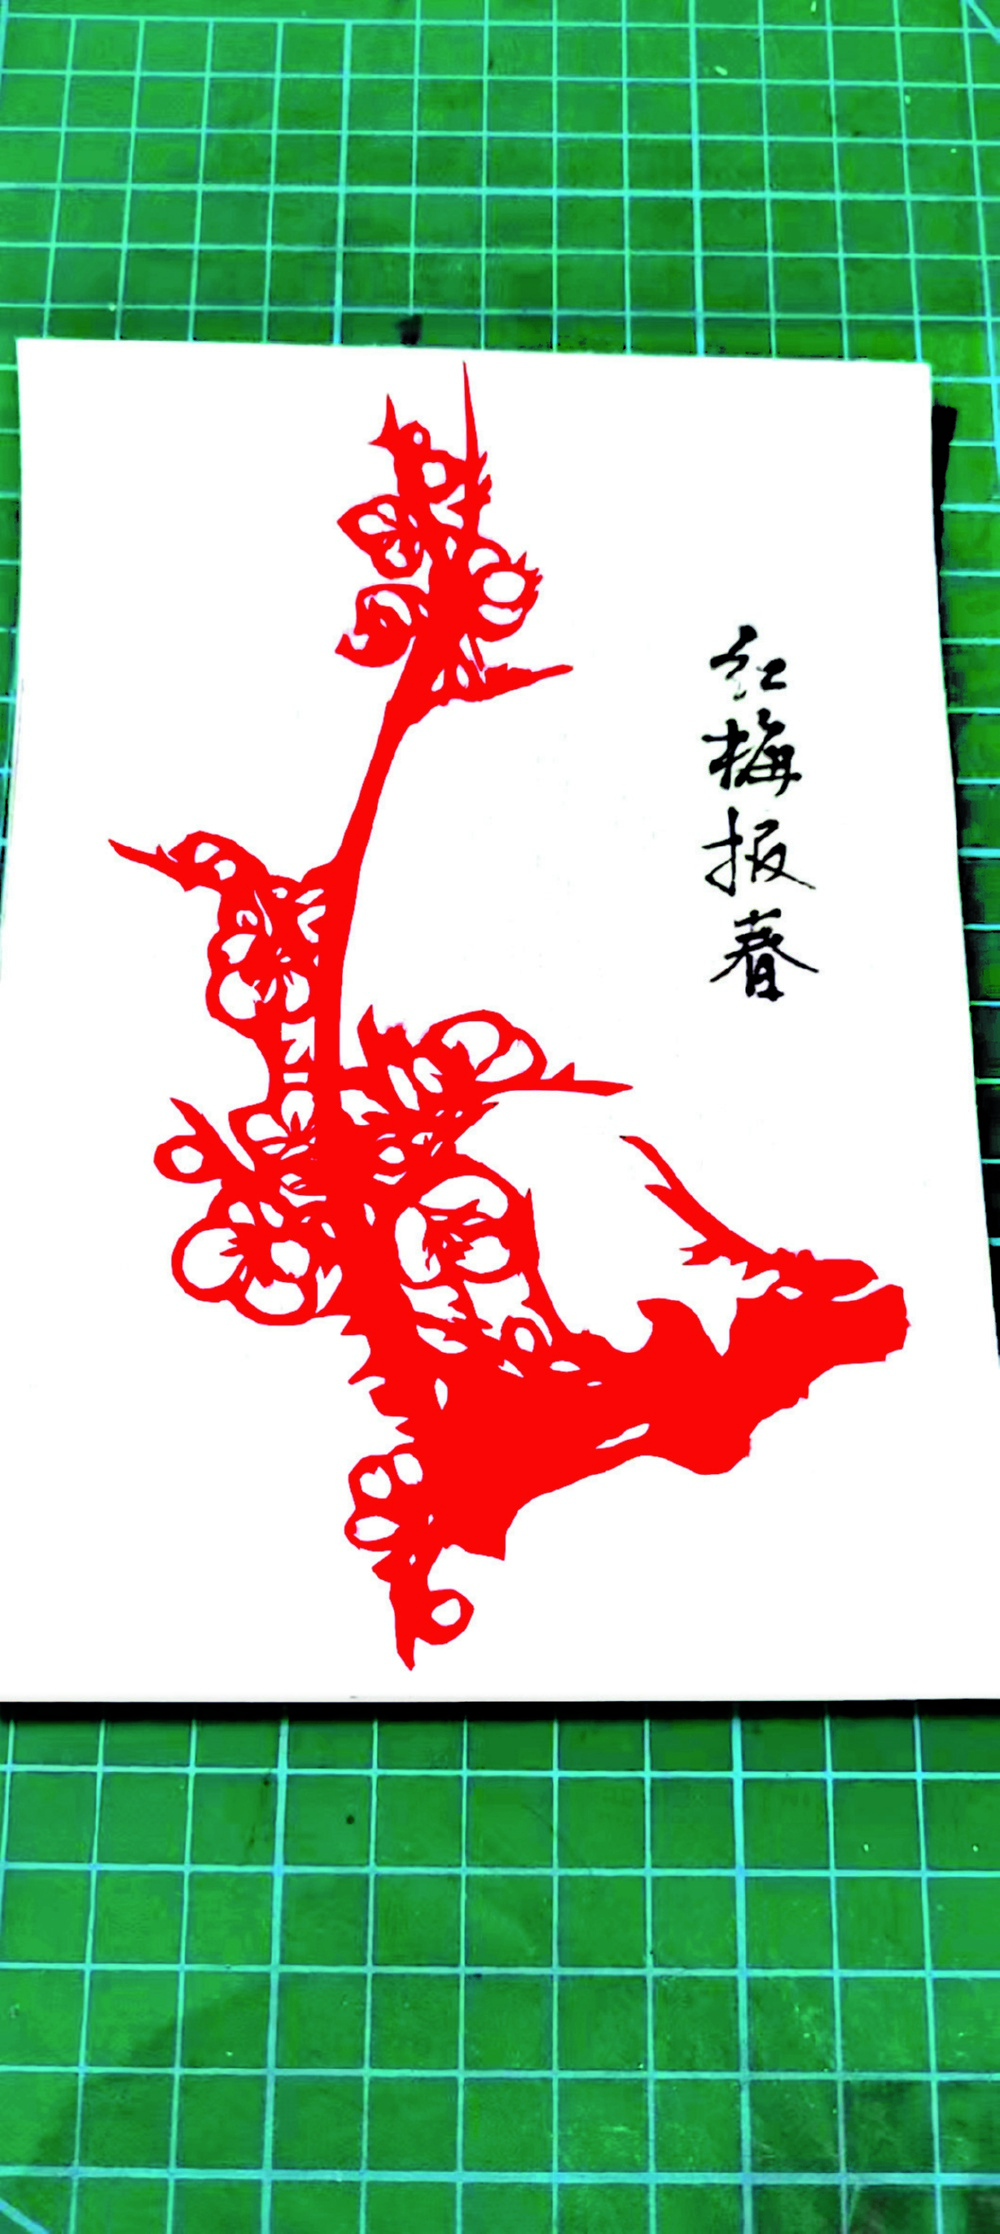 红梅报春